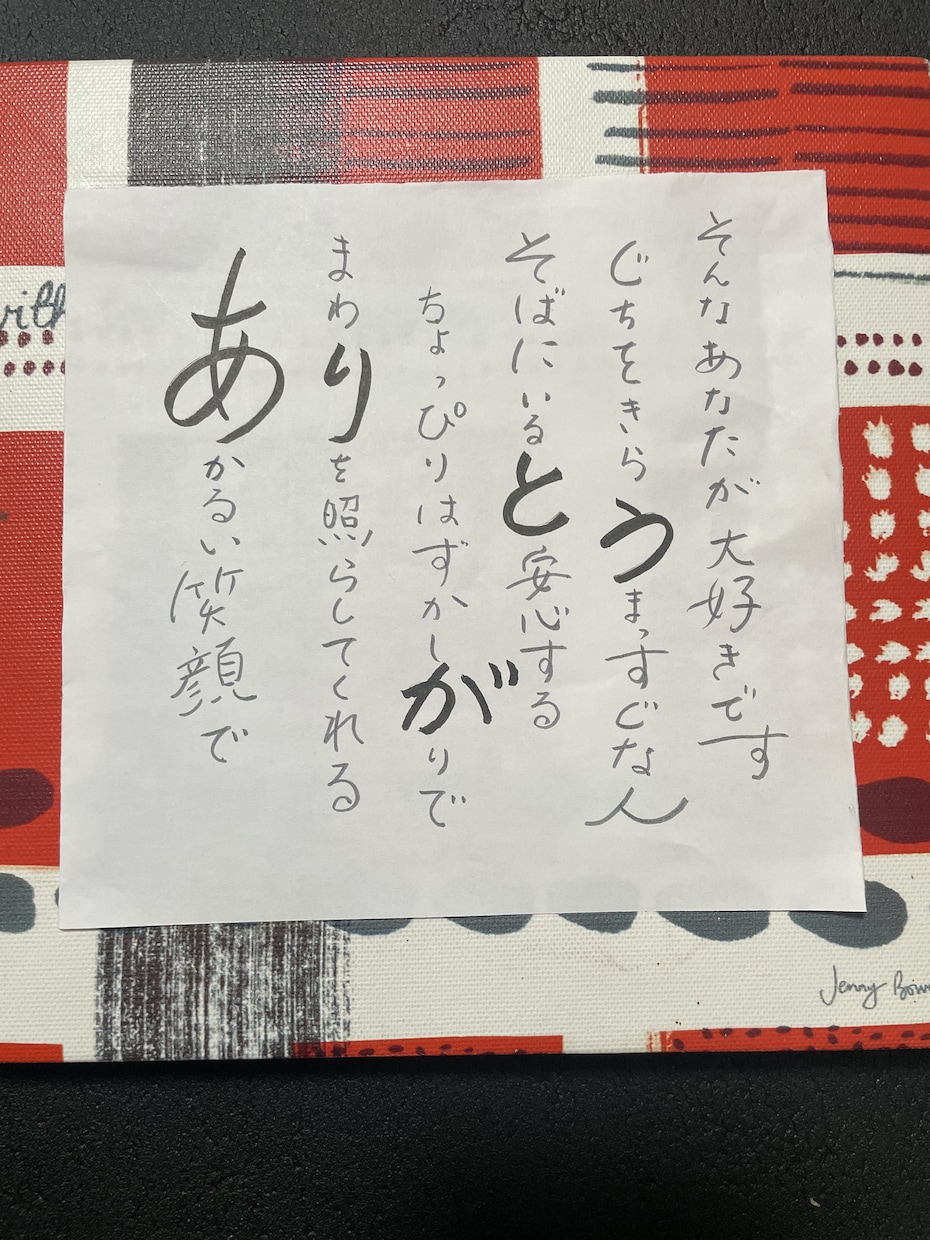 あかるい笑顔で
まわりを照らしてくれる
ちょっぴりはずかしがりで
そばにいると安心する
ぐちをきらうまっすぐな人
そんなあなたが大好きです
Jenny